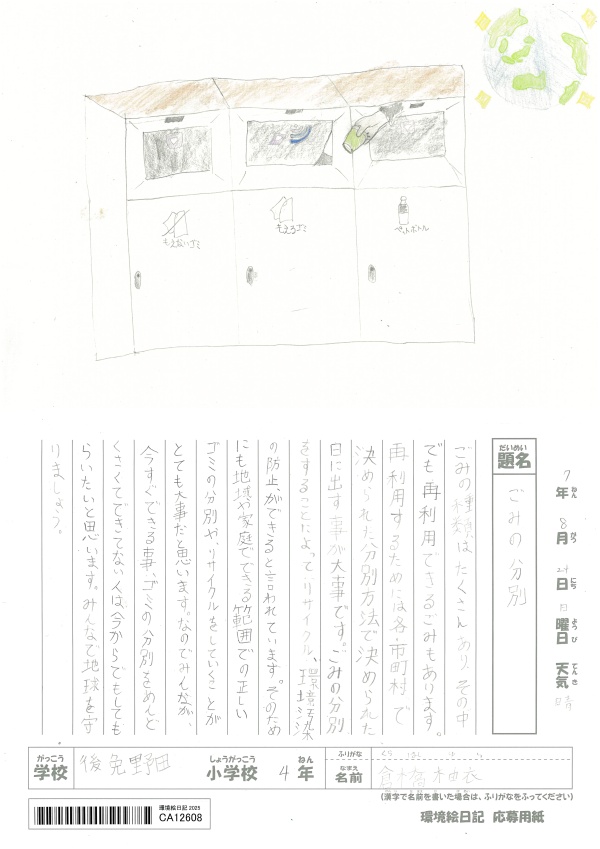 もえないゴミ
もえるゴミ
ペットボトル
7年 8月 24日 日曜日 天気 晴
ねん がつ にち ようび てんき
だいめい
題名
ごみの分別
ごみの種類はたくさんあり、その中
でも再利用できるごみもあります。
再利用するためには各市町村で
決められた分別方法で決められた
日に出す事が大事です。ごみの分別
をすることによってリサイクル、環境汚染
の防止ができると言われています。そのため
にも地域や家庭でできる範囲での正しい
ゴミの分別や、リサイクルをしていくことが
とても大事だと思います。なのでみんなが、
今すぐできる事、ゴミの分別をめんど
くさくてできてない人は今からでもしても
らいたいと思います。みんなで地球を守
りましょう。
がっこう しょうがっこう ねん ふりがな
学校 後免野田 小学校 4年
なまえ
名前 倉橋柚衣
(漢字で名前を書いた場合は、ふりがなをふってください)
環境絵日記 2025
CA12608
環境絵日記 応募用紙